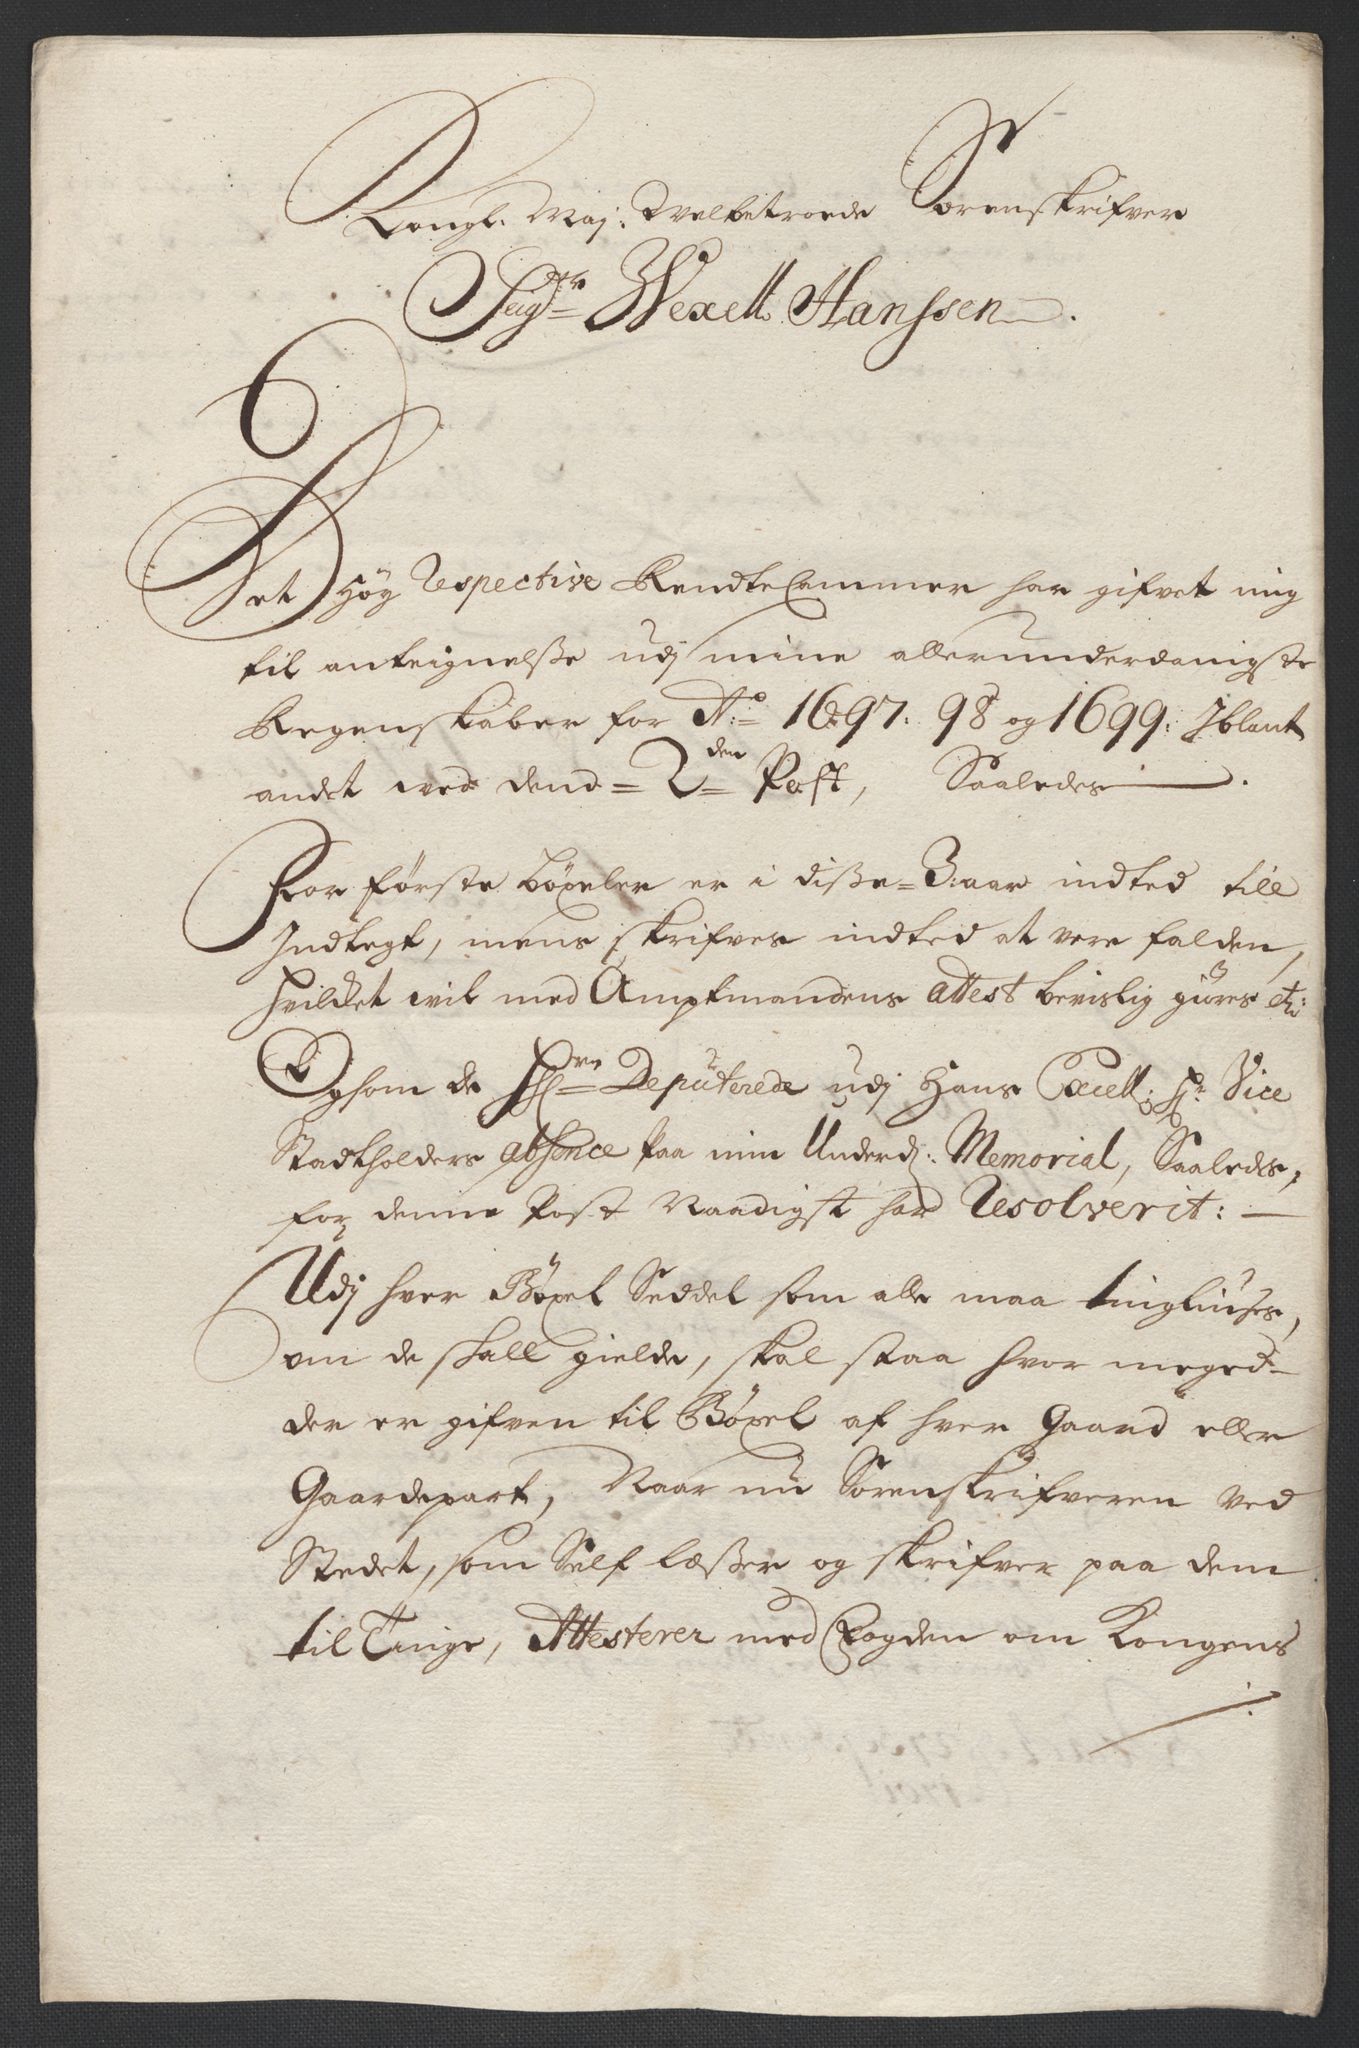 Kongl. Maj: Welbetroede Sorenskrifver
Sigr= Wexell Hanssen.
Det Høy Respective RendteCammer har gifvet mig
til anteignelsse udj mine allerunderdanigste
Regenskaber for Ao= 1697. 98 og 1699: Iblant
andet ved dend = 2den= Post, Saaledes
For første Böxeler er i disse = 3: aar indted till
Indtegt, mens skrifves indted at vere falden,
hvilcket vil med Amptmandens attest bevislig giøres etc:
Og som de Hrre= Deputerede udj Hans Excell: Hr. Vice
Stadtholders absence paa min Underd: Memorial, Saaledes,
for denne Post Naadigst har Resolverit:
Udj hver Bøxel Seddel som alle maa tingliuses,
om de skall gielde, skal staa hvor meged
der er gifven til Bøxel af hver Gaard eller
Gaardepart, Naar nu Sorenskrifveren ved
Stedet, som Self læsser og skrifver paa dem
til Tinge, Attesterer med Fogden om Kongens